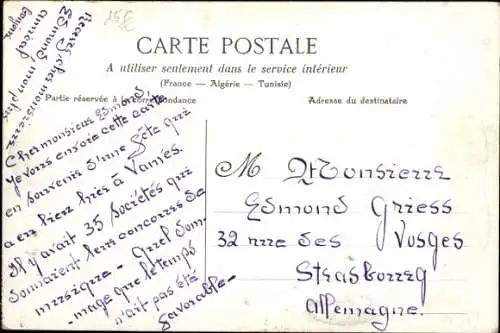 15 €
CARTE POSTALE
A utiliser seulement dans le service intérieur
(France — Algérie — Tunisie)
Partie réservée à la correspondance
Adresse du destinataire
Cher monsieur Edmond
Je vous envoie cette carte
en souvenir d'une fête qui
a eu lieu hier à Vannes
Il y avait 35 Sociétés qui
donnaient leur concours de
musique - Quel dom-
mage que le temps
n'ait pas été
favorable -
Recevez, cher monsieur
Edmond, mon plus
amical
bonjour
M Monsieur
Edmond Griess
32 rue des Vosges
Strasbourg
Allemagne